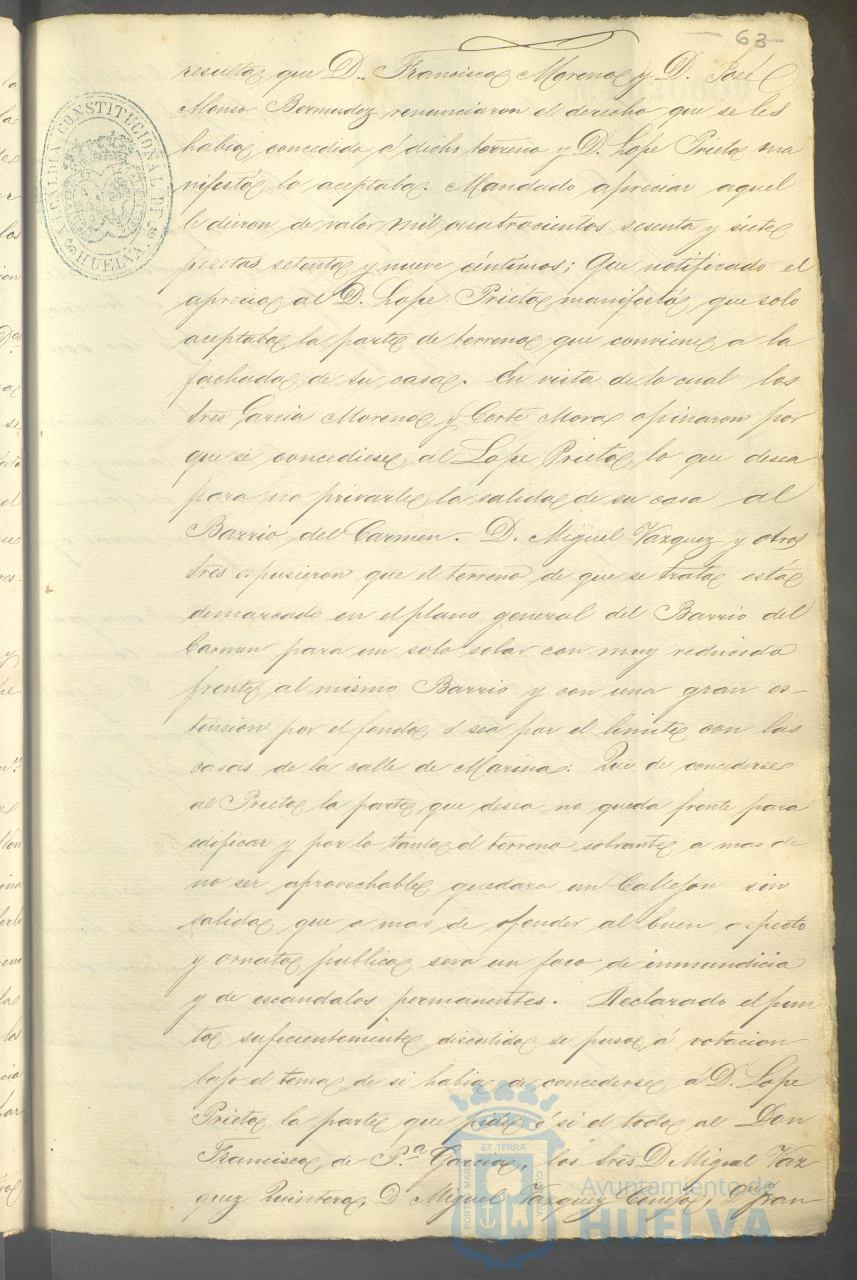 63
resulta que D. Francisco Moreno y D. José
Alonso Bermudez renunciaron el derecho que se les
había concedido al dicho terreno y D. Lope Prieto ma
nifestó lo aceptaba. Mandado apreciar aquel
le dieron de valor mil cuatrocientos sesenta y siete
pesetas setenta y nueve céntimos; Que notificado el
aprecio al D. Lope Prieto manifestó que solo
aceptaba la parte de terreno que conviene a la
fachada de su casa. En vista de lo cual los
Sres Garcia Moreno y Corte Mora opinaron por
que se concediese al Lope Prieto lo que desea
para no privarle la salida de su casa al
Barrio del Carmen. D. Miguel Vazquez y otros
Sres espusieron que el terreno de que se trata está
demarcado en el plano general del Barrio del
Carmen para un solo solar con muy reducido
frente al mismo Barrio y con una gran es-
tension por el fondo ó sea por el límite con las
casas de la calle de Marina: Que de concederse
al Prieto la parte que desea no queda frente para
edificar y por lo tanto el terreno sobrante a mas de
no ser aprovechable quedara un Callejon sin
salida que a mas de ofender al buen aspecto
y ornato público sera un foco de inmundicia
y de escandalos permanentes. Declarado el pun
to suficientemente discutido se puso á votacion
bajo el tema de si habia de concederse á D. Lope
Prieto la parte que pide ó si el todo al Don
Francisco de P.ª Garcia, los Sres D Miguel Vaz
quez Quintero, D Miguel Vazquez Conejo, Dn Fran
ALCALDIA CONSTITUCIONAL DE HUELVA
PORTUS MARIS ET TERRÆ CUSTODIA
Ayuntamiento de
HUELVA